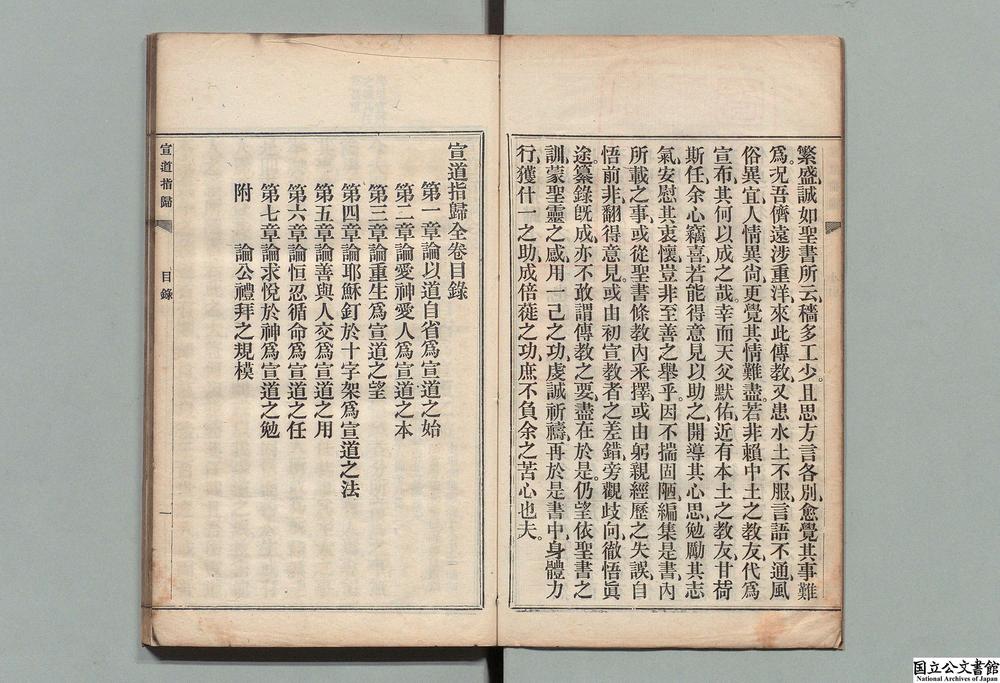 繁盛、誠如聖書所云、穡多工少。且思方言各別、愈覺其事難
爲。况吾儕遠涉重洋、來此傳教、又患水土不服、言語不通、風
俗異宜、人情異尙、更覺其情難盡。若非賴中土之教友、代爲
宣布、其何以成之哉。幸而天父默佑、近有本土之教友、甘荷
斯任、余心竊喜、若能得意見以助之、開導其心思、勉勵其志
氣、安慰其衷懷、豈非至善之舉乎。因不揣固陋、編集是書、內
所載之事、或從聖書條教內采擇、或由躬親經歷之失誤、自
悟前非、翻得意見、或由初宣教者之差錯、旁觀歧向、徹悟眞
途。纂錄旣成、亦不敢謂傳教之要、盡在於是。仍望依聖書之
訓、蒙聖靈之感、用一己之功、虔誠祈禱、再於是書中、身體力
行、獲什一之助、成倍蓰之功、庶不負余之苦心也夫。
宣道指歸全卷目錄
第一章論以道自省爲宣道之始
第二章論愛神愛人爲宣道之本
第三章論重生爲宣道之望
第四章論耶穌釘於十字架爲宣道之法
第五章論善與人交爲宣道之用
第六章論恒忍循命爲宣道之任
第七章論求悅於神爲宣道之勉
附 論公禮拜之規模
宣道指歸 目錄 一
国立公文書館
National Archives of Japan